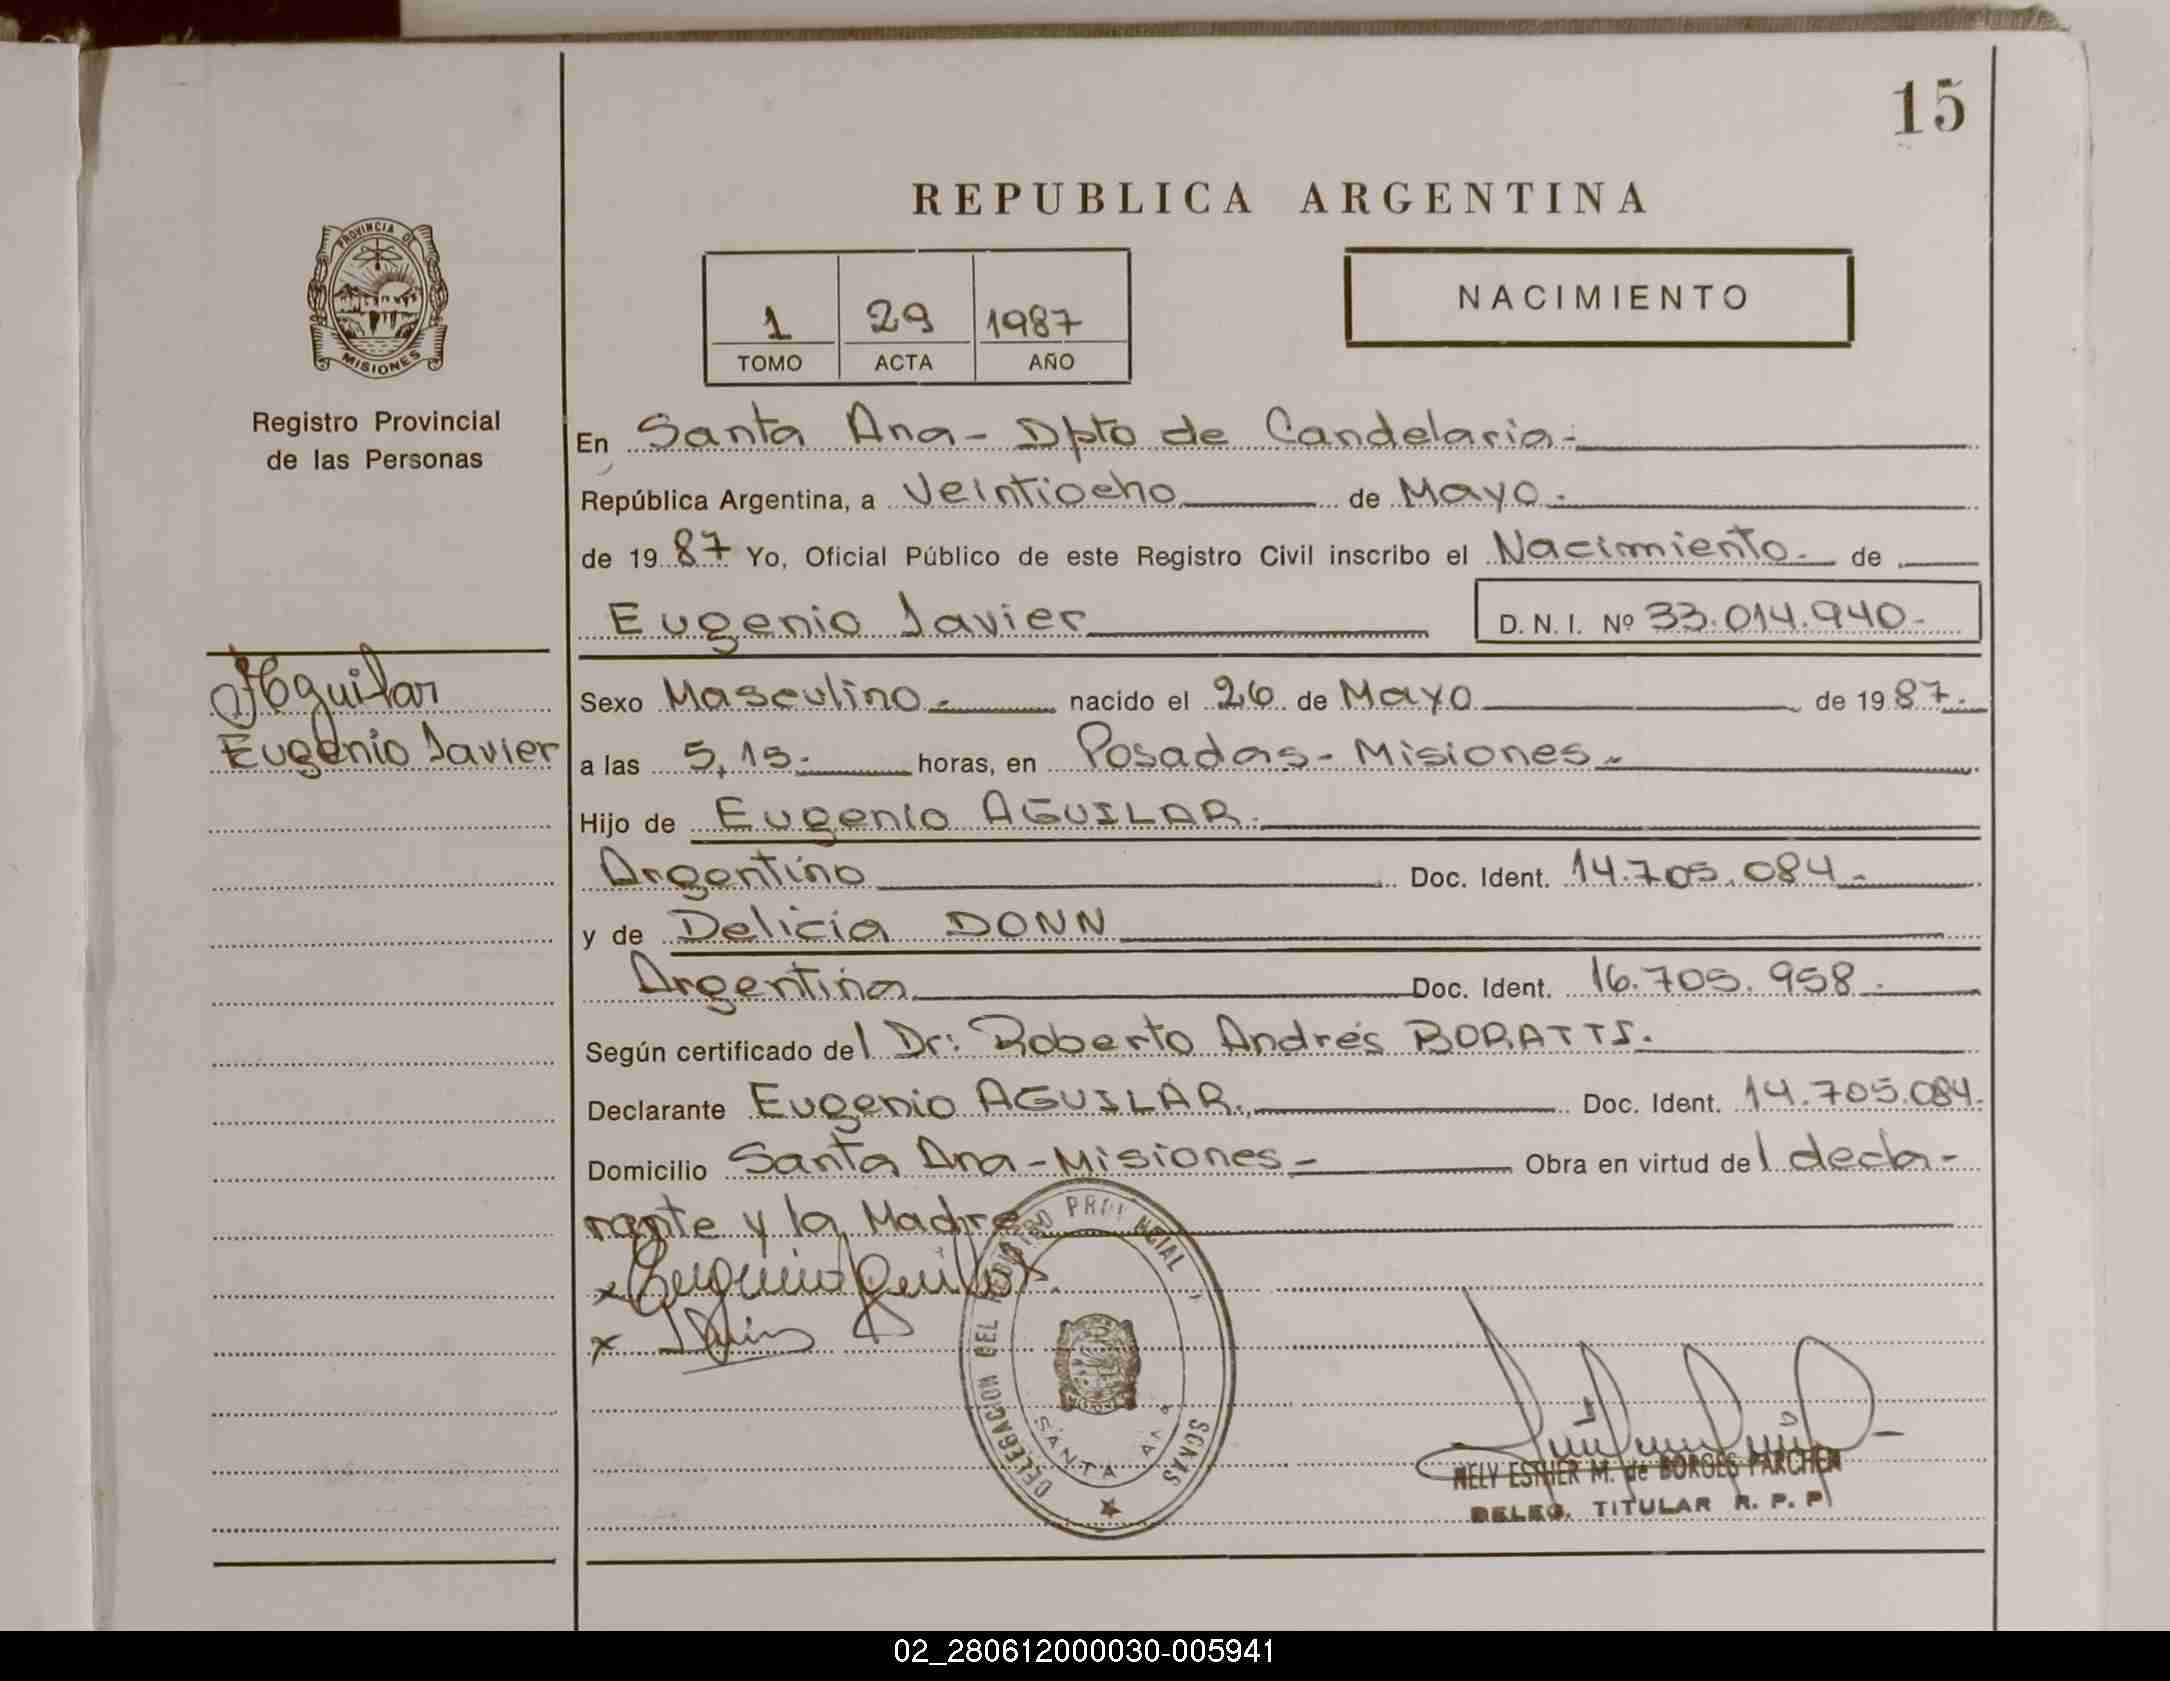 15
REPUBLICA ARGENTINA
PROVINCIA DE
MISIONES
Registro Provincial
de las Personas
1 29 1987
TOMO ACTA AÑO
NACIMIENTO
En Santa Ana - Dpto de Candelaria -
República Argentina, a Veintiocho de Mayo.
de 1987 Yo, Oficial Público de este Registro Civil inscribo el Nacimiento. de
Eugenio Javier D. N. I. Nº 33.014.940-
Aguilar
Eugenio Javier
Sexo Masculino.- nacido el 26 de Mayo de 1987.-
a las 5,15.- horas, en Posadas - Misiones.-
Hijo de Eugenio AGUILAR.
Argentino Doc. Ident. 14.705.084.-
y de Delicia DONN
Argentina Doc. Ident. 16.705.958.-
Según certificado del Dr: Roberto Andrés BORATTI.
Declarante Eugenio AGUILAR. Doc. Ident. 14.705.084.
Domicilio Santa Ana - Misiones - Obra en virtud del decla-
rante y la Madre
x
x
DELEGACION DEL REGISTRO PROVINCIAL
SANTA ANA
NELY ESTHER M. de BORGES PARCHEN
DELEG. TITULAR R. P. P
02_280612000030-005941